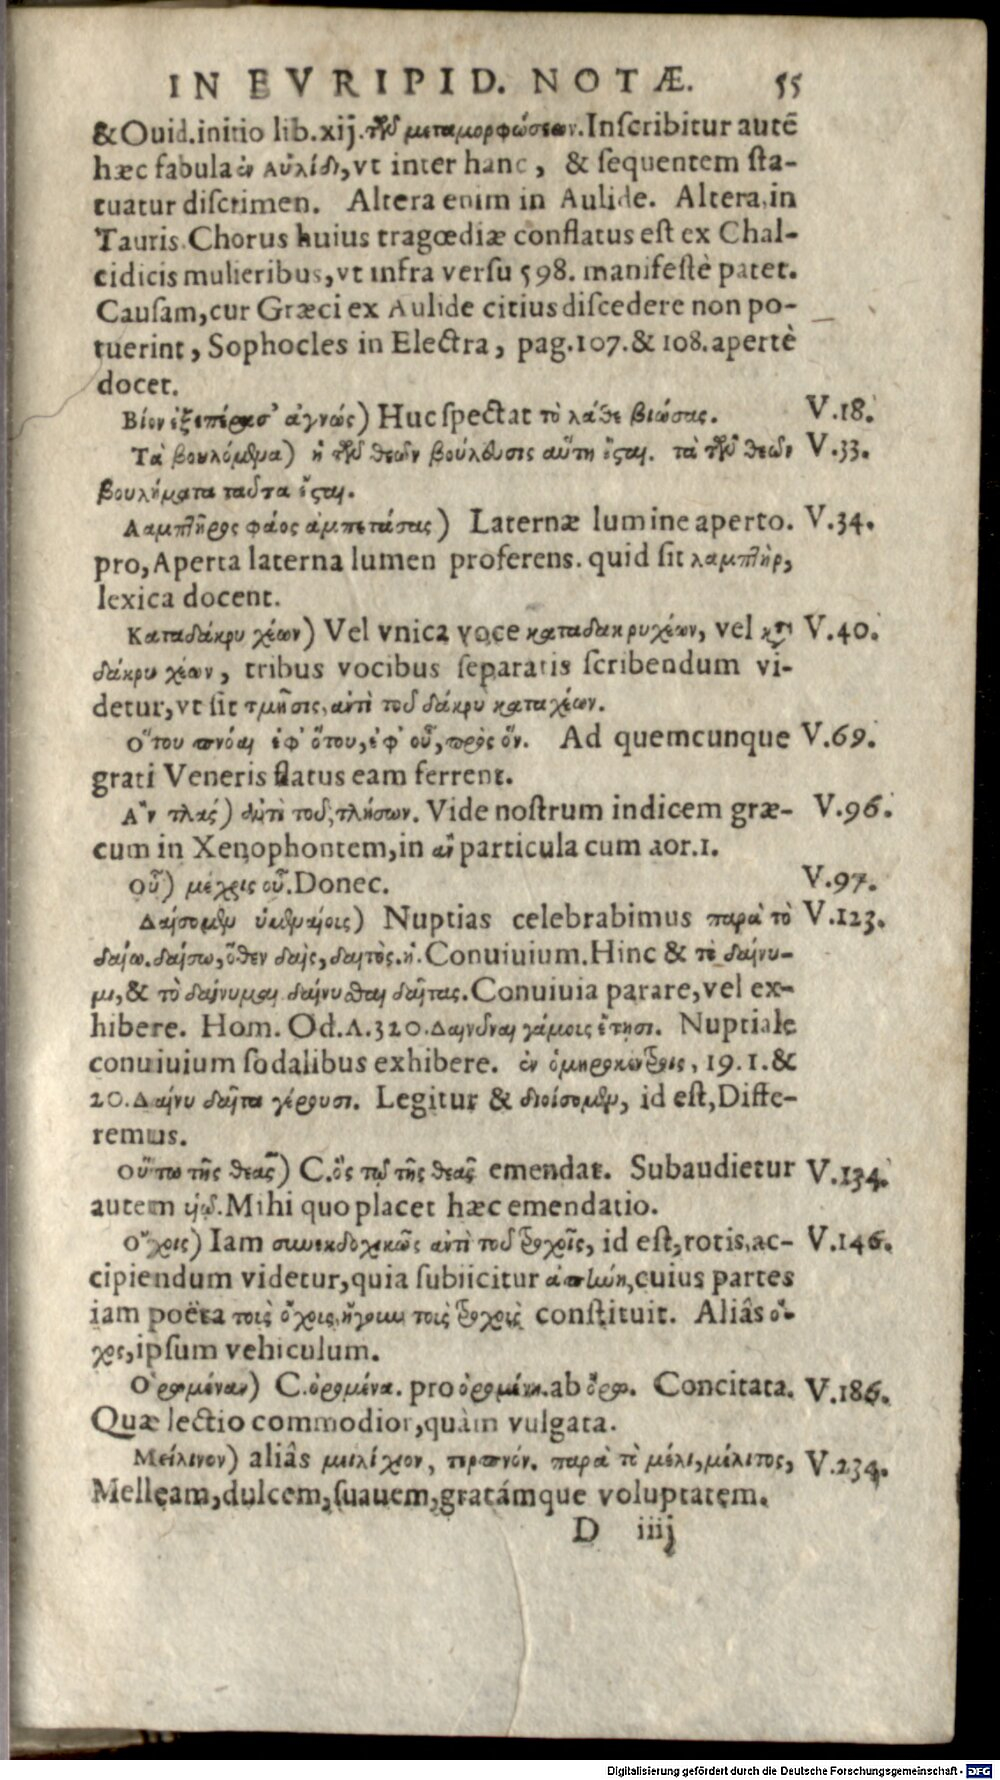 IN EVRIPID. NOTÆ. 55
& Ouid. initio lib. xij. τῶν μεταμορφώσεων. Inscribitur autē
hæc fabula ἐν Αὐλίδι, vt inter hanc, & sequentem sta-
tuatur discrimen. Altera enim in Aulide. Altera, in
Tauris. Chorus huius tragœdiæ conflatus est ex Chal-
cidicis mulieribus, vt infra versu 598. manifestè patet.
Causam, cur Græci ex Aulide citius discedere non po-
tuerint, Sophocles in Electra, pag. 107. & 108. apertè
docet.
Βίον ἐξεπέρασ' ἀγνώς) Huc spectat τὸ λάθε βιώσας. V. 18.
Τὰ βουλόμενα) ἡ τῶν θεῶν βούλευσις αὕτη ἔσται. τὰ τῶν θεῶν V. 33.
βουλήματα ταῦτα ἔσται.
Λαμπτῆρος φάος ἀμπετάσας) Laternæ lumine aperto. V. 34.
pro, Aperta laterna lumen proferens. quid sit λαμπτὴρ,
lexica docent.
Καταδάκρυ χέων) Vel vnica voce καταδακρυχέων, vel κατὰ V. 40.
δάκρυ χέων, tribus vocibus separatis scribendum vi-
detur, vt sit τμῆσις, ἀντὶ τοῦ δάκρυ καταχέων.
Ὅτου πνόαι ἐφ' ὅτου, ἐφ' οὗ, πρὸς ὅν. Ad quemcunque V. 69.
grati Veneris flatus eam ferrent.
Ἂν τλάς) ἀντὶ τοῦ, τλήσων. Vide nostrum indicem græ- V. 96.
cum in Xenophontem, in ἂν particula cum aor. 1.
Οὗ) μέχρις οὗ. Donec. V. 97.
Δαίσομεν ὑμεναίοις) Nuptias celebrabimus παρὰ τὸ V. 123.
δαίω. δαίσω, ὅθεν δαὶς, δαιτὸς. ἡ. Conuiuium. Hinc & τὸ δαίνυ-
μι, & τὸ δαίνυμαι δαίνυσθαι δαῖτας. Conuiuia parare, vel ex-
hibere. Hom. Od. Λ. 320. Δαινῦναι γάμοις ἔτησι. Nuptiale
conuiuium sodalibus exhibere. ἐν ὁμηροκέντροις, 19. 1. &
20. Δαίνυ δαῖτα γέρουσι. Legitur & διοίσομεν, id est, Diffe-
remus.
Οὕτω τῆς θεᾶς) C. ὃς τῷ τῆς θεᾶς emendat. Subaudietur V. 134.
autem υἱῷ. Mihi quo placet hæc emendatio.
Ὄχοις) Iam συνεκδοχικῶς ἀντὶ τοῦ τροχοῖς, id est, rotis, ac- V. 146.
cipiendum videtur, quia subiicitur ἀπήνη, cuius partes
iam poëta τοὺς ὄχοις, ἤγουν τοὺς τροχοὺς constituit. Aliâs ὄ-
χος, ipsum vehiculum.
Ὀρομέναν) C. ὀρομένα. pro ὀρομένη. ab ὄρω. Concitata. V. 186.
Quæ lectio commodior, quàm vulgata.
Μείλινον) aliâs μειλίχιον, τερπνόν. παρὰ τὸ μέλι, μέλιτος, V. 234.
Melleam, dulcem, suauem, gratámque voluptatem.
D iiij
Digitalisierung gefördert durch die Deutsche Forschungsgemeinschaft - DFG